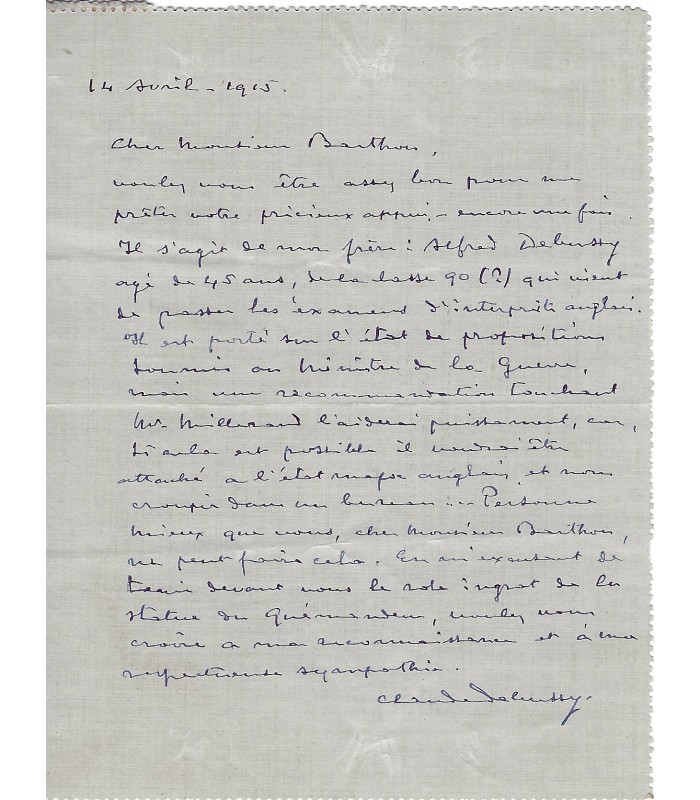 14 Avril - 1915.
Cher Monsieur Barthou,
voulez vous être assez bon pour me
prêter votre précieux appui - encore une fois.
Il s'agit de mon frère : Alfred Debussy
agé de 45 ans, de la classe 90 (?) qui vient
de passer les examens d'interprète anglais.
Il est porté sur l'état de propositions
soumis au Ministre de la Guerre,
mais une recommandation touchant
Mr. Millerand l'aiderai puissament, car,
si cela est possible il voudrai être
attaché a l'état major anglais, et non
croupir dans un bureau... Personne
mieux que vous, cher Monsieur Barthou,
ne peut faire cela. En m'excusant de
tenir devant vous le role ingrat de la
statue du Quémandeur, voulez vous
croire a ma reconnaissance et à ma
respectueuse sympathie.
Claude Debussy.